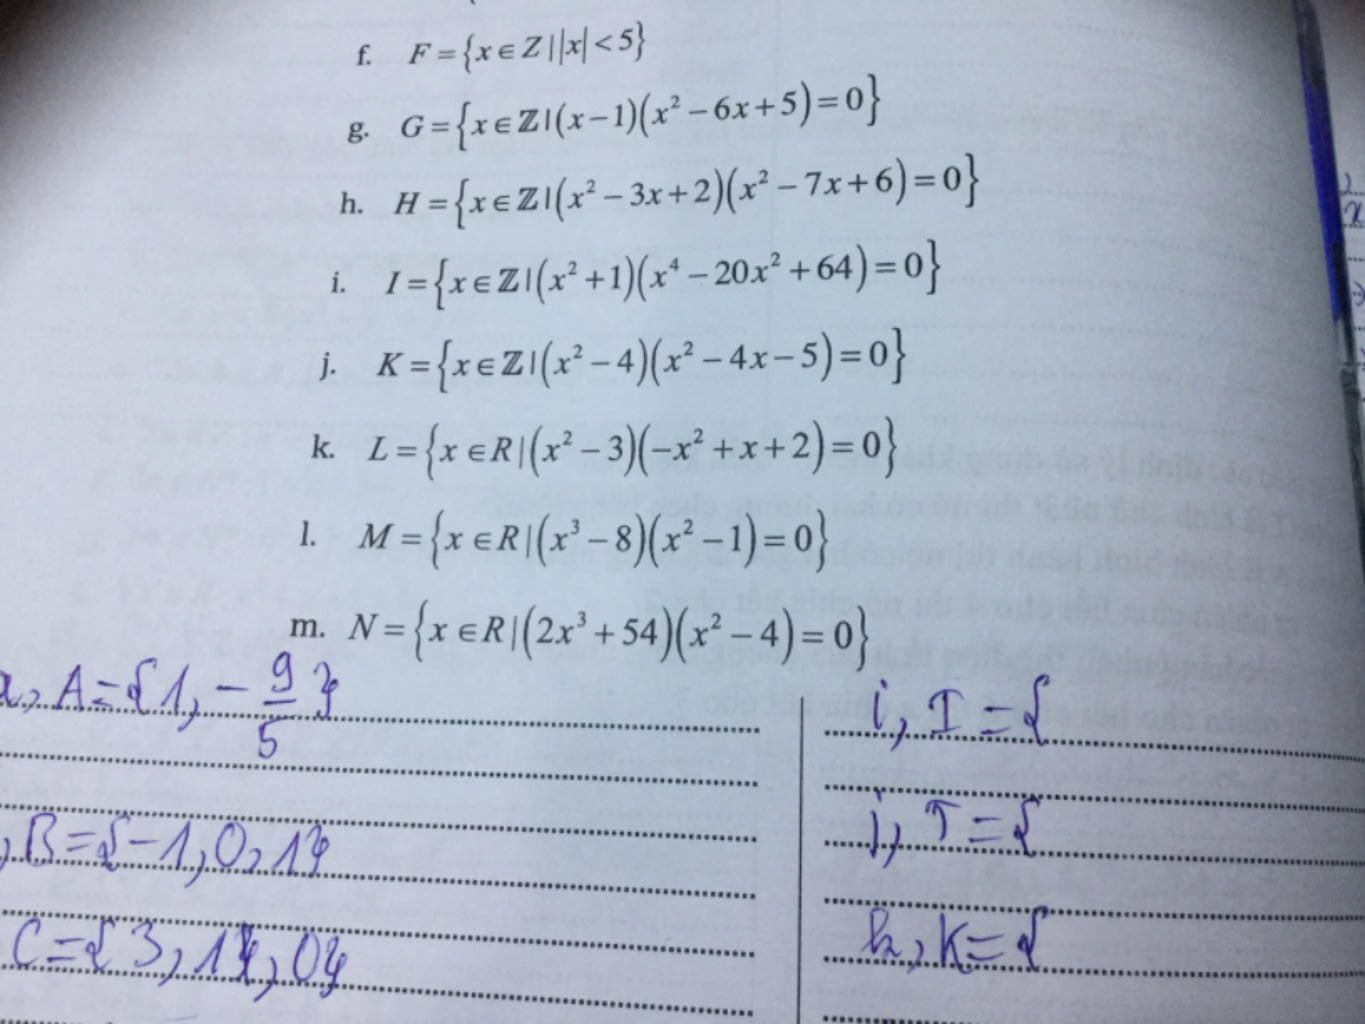 f. F = {x ∈ Z | |x| < 5}
g. G = {x ∈ ℤ | (x−1)(x² − 6x + 5) = 0}
h. H = {x ∈ ℤ | (x² − 3x + 2)(x² − 7x + 6) = 0}
i. I = {x ∈ ℤ | (x² + 1)(x⁴ − 20x² + 64) = 0}
j. K = {x ∈ ℤ | (x² − 4)(x² − 4x − 5) = 0}
k. L = {x ∈ R | (x² − 3)(−x² + x + 2) = 0}
l. M = {x ∈ R | (x³ − 8)(x² − 1) = 0}
m. N = {x ∈ R | (2x³ + 54)(x² − 4) = 0}
a, A = {1, − 9/5}
B = {−1, 0, 1}
i, I = {
j, J = {
k, K = {